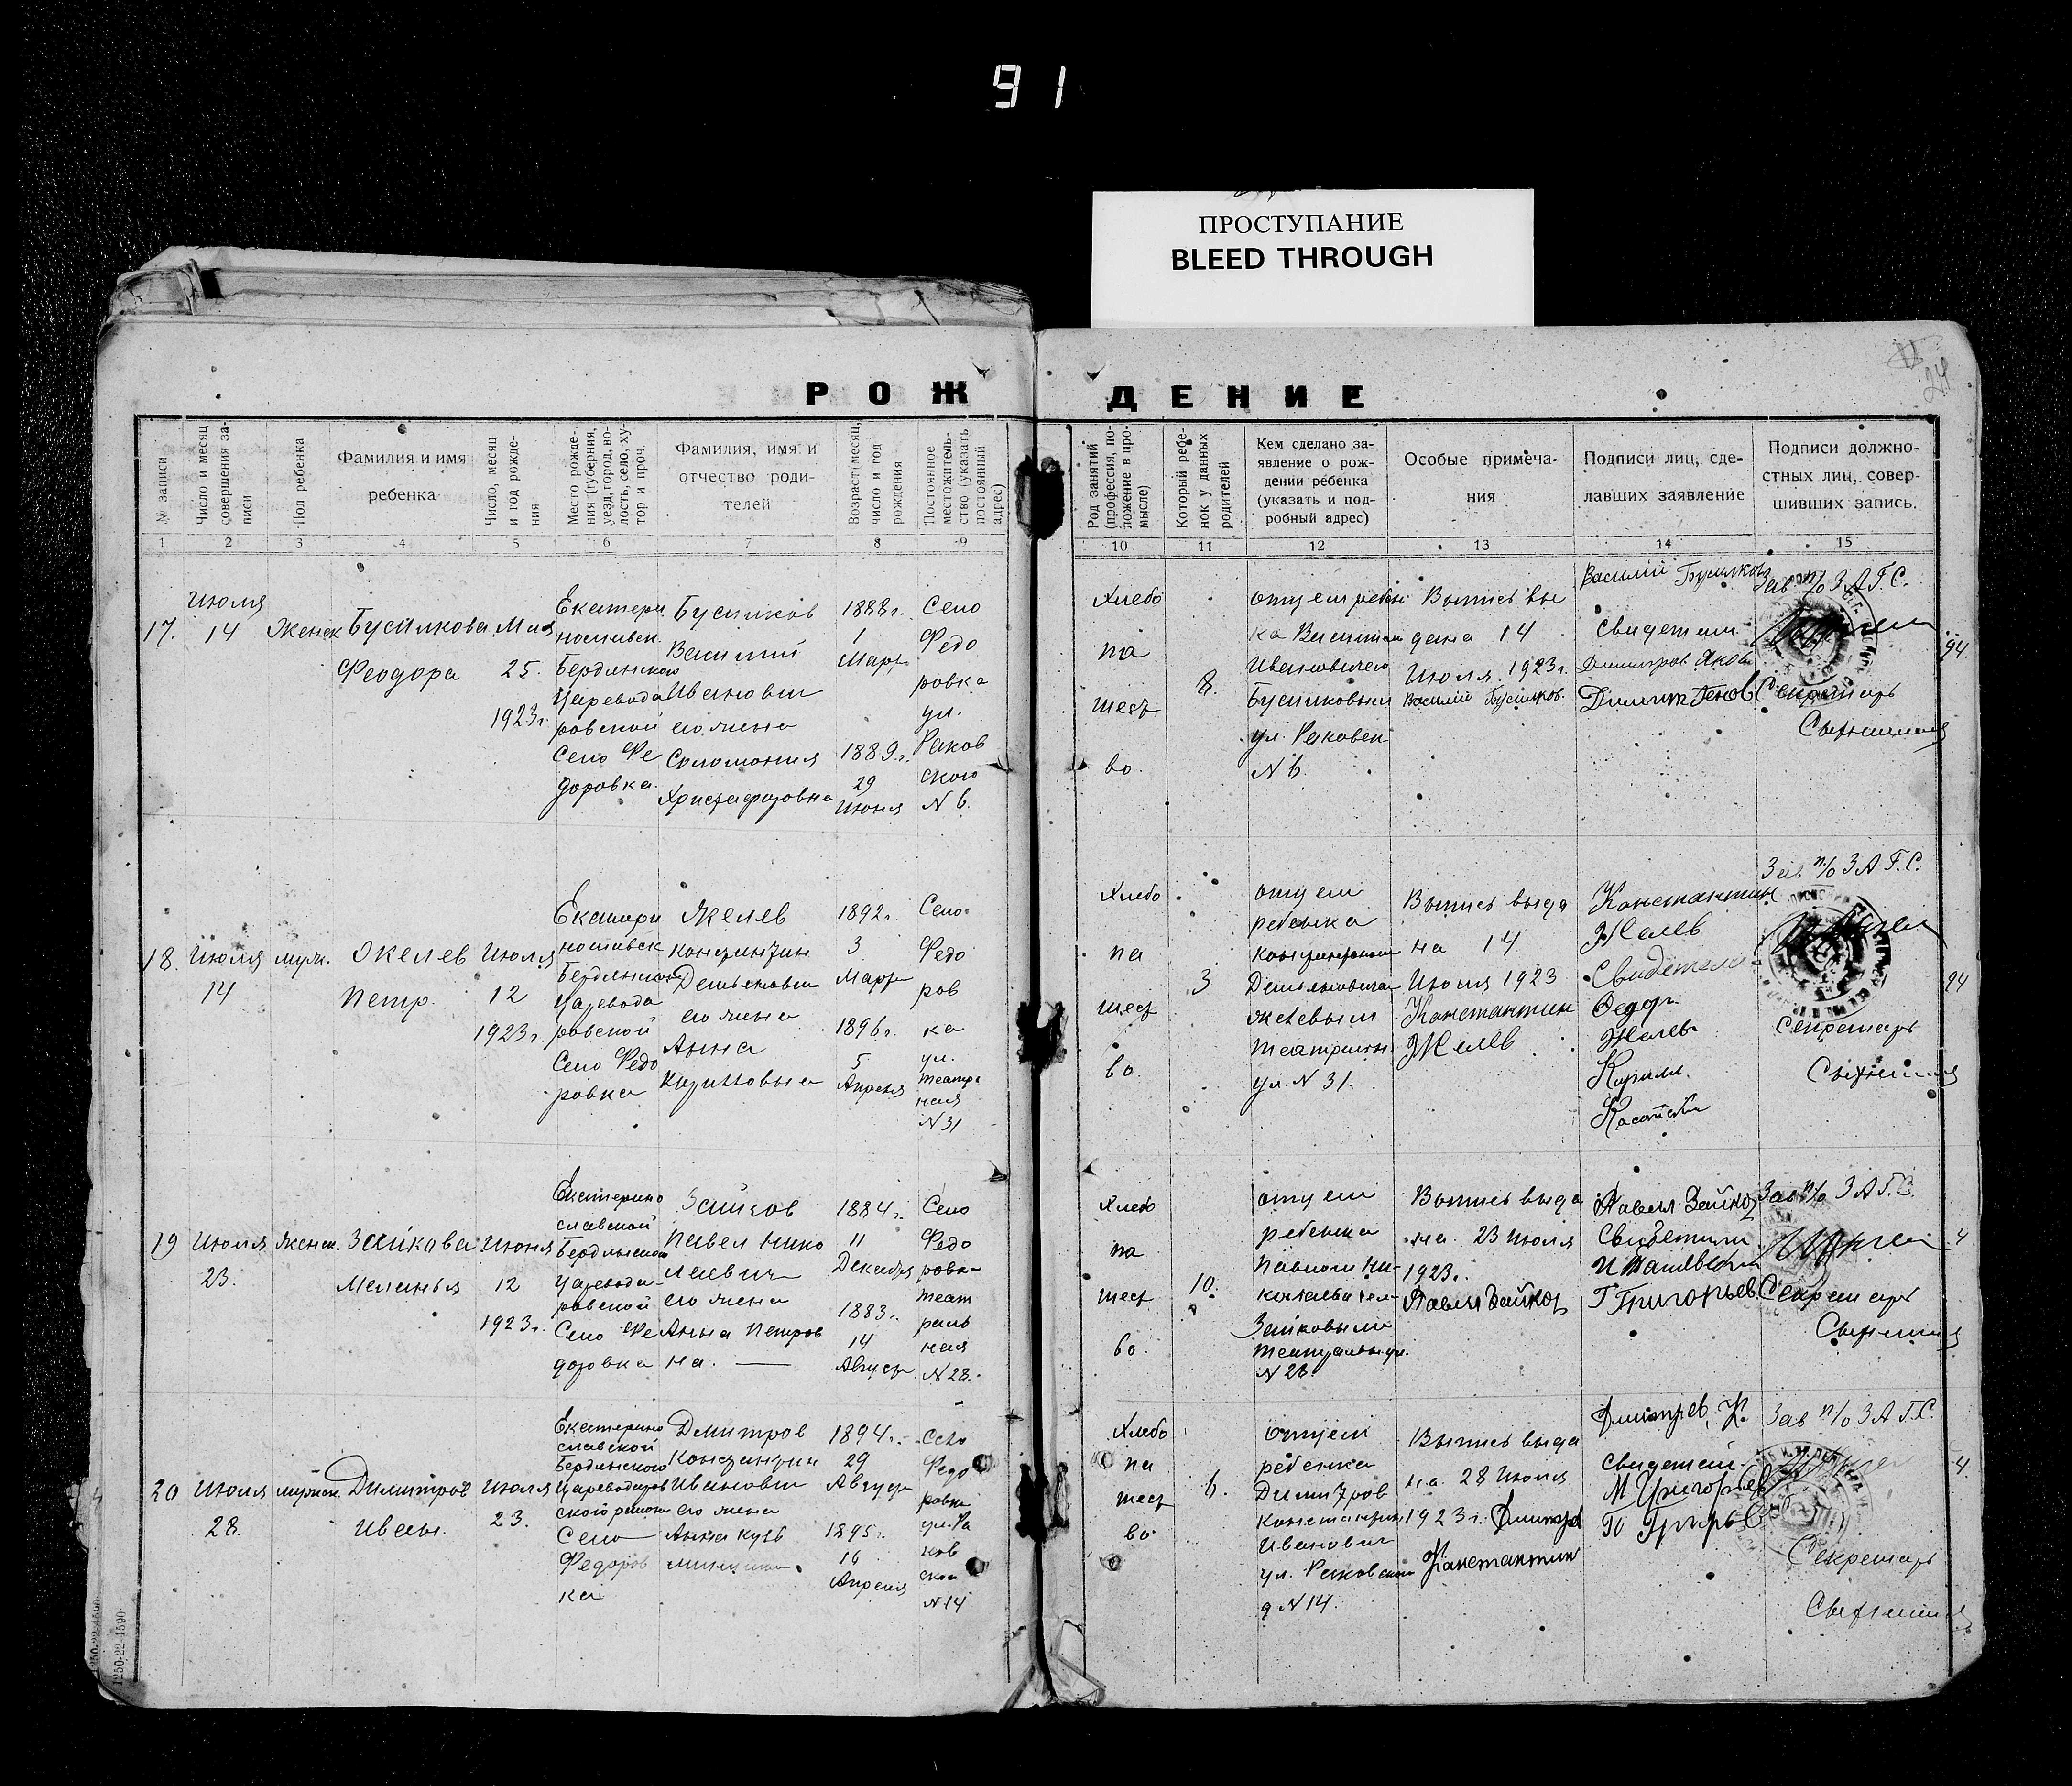 91
ПРОСТУПАНИЕ
BLEED THROUGH
24
РОЖ
ДЕНИЕ
№ записи
Число и месяц совершения записи
Пол ребенка
Фамилия и имя
ребенка
Число, месяц
и год рожде-
ния
Место рожде-
ния (губерния,
уезд, город, во-
лость, село, ху-
тор и проч.
Фамилия, имя и
отчество роди-
телей
Возраст (месяц,
число и год
рождения
Постоянное
местожитель-
ство (указать
постоянный
адрес)
Род занятий
(профессия, по-
ложение в про-
мысле)
Который ребе-
нок у данных
родителей
Кем сделано за-
явление о рож-
дении ребенка
(указать и под-
робный адрес)
Особые примеча-
ния
Подписи лиц, сде-
лавших заявление
Подписи должно-
стных лиц, совер-
шивших запись.
1 2 3 4 5 6 7 8 9
10 11 12 13 14 15
17.
Июля
14
Женск
Бусилкова
Феодора
Мая
25.
1923г.
Екатери
нославск.
Бердянского
Царевода
ровской
Село Фе
доровка.
Бусилков
Василий
Иванович
его жена
Соломония
1888г.
1
Март
1889г.
29
Июня
Село
Федо
ровка
ул.
Раков
ского
N 6.
Хлебо
па
шест
во.
8.
отцем ребен
ка
Ивановичем
Бусилковым
ул. Раковск
N 6.
Выпись вы
дана 14
Июля 1923г.
Василий Бусилков
Василий Бусилков
Свидетели
Зав п/о З А Г. С.
Секретарь
94
18.
Июля
14
муж.
Желев
Петр.
Июля
12
1923г.
Екатери
нославск
Бердянской
Царевода
ровской
Село Федо
ровка
Желев
Константин
его жена
Анна
Кириловна
1892г.
3
Март
1896г.
5
Апреля
Село
Федо
ров
ка
ул.
Театра
ная
N 31
Хлебо
па
шест
во.
3
отцем
ребенка
Желевым
Театральн.
ул. N 31.
Выпись выда
на 14
Июля 1923
Константин
Желев
Константин
Желев
Свидетели
Федор
Желев
Кирилл
Зав п/о З А Г. С.
Секретарь
94
19
Июля
23.
женск.
Зайкова
Меланья
Июня
12
1923г.
Екатерино
славской
Бердянской
Царевода
ровской
Село Фе
доровка
Зайков
Павел Нико
лаевич
его жена
Анна Петров
на. —
1884г.
11
Декабря
1883г.
14
Август
Село
Федо
ровка
Теат
раль
ная
N 28.
Хлебо
па
шест
во.
10.
отцем
ребенка
Павлом Ни-
колаевичем
Зайковым
Театральн. ул.
N 28.
Выпись выда
на 23 Июля
1923г.
Павел Зайков
Павел Зайков
Свидетели
Г Григорьев
Зав п/о З А Г. С.
Секретарь
4
20
Июля
28.
мужск.
Димитров
Иван.
Июля
23.
Екатерино
славской
Бердянского
Цареводаров
ского района
Село
Федоров
ка
Димитров
Константин
Иванович
его жена
Анна Кузь
1894г.
29
Август
1895г.
16
Апреля
Село
Федо
ровка
ул. Ра
ков
ская
N 14
Хлебо
па
шест
во
6.
отцем
ребенка
Димитров
Константин
Иванович
ул. Раковской
д N 14.
Выпись выда
на 28 Июля
1923г.
Константин
Свидетели
М Григорьев
Зав п/о З А Г. С.
Секретарь
4.
1250-22-4590